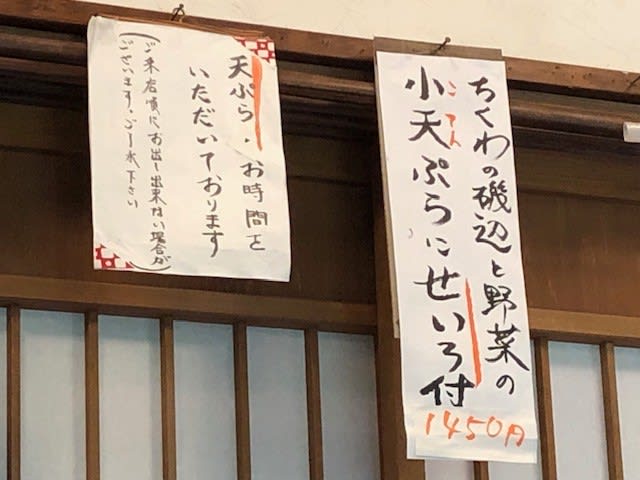 ちくわの磯辺と野菜の
こてん
小天ぷらにせいろ付
1450円
天ぷら、お時間を
いただいております
(ご来店順にお出し出来ない場合が
ございます。ご了承下さい)